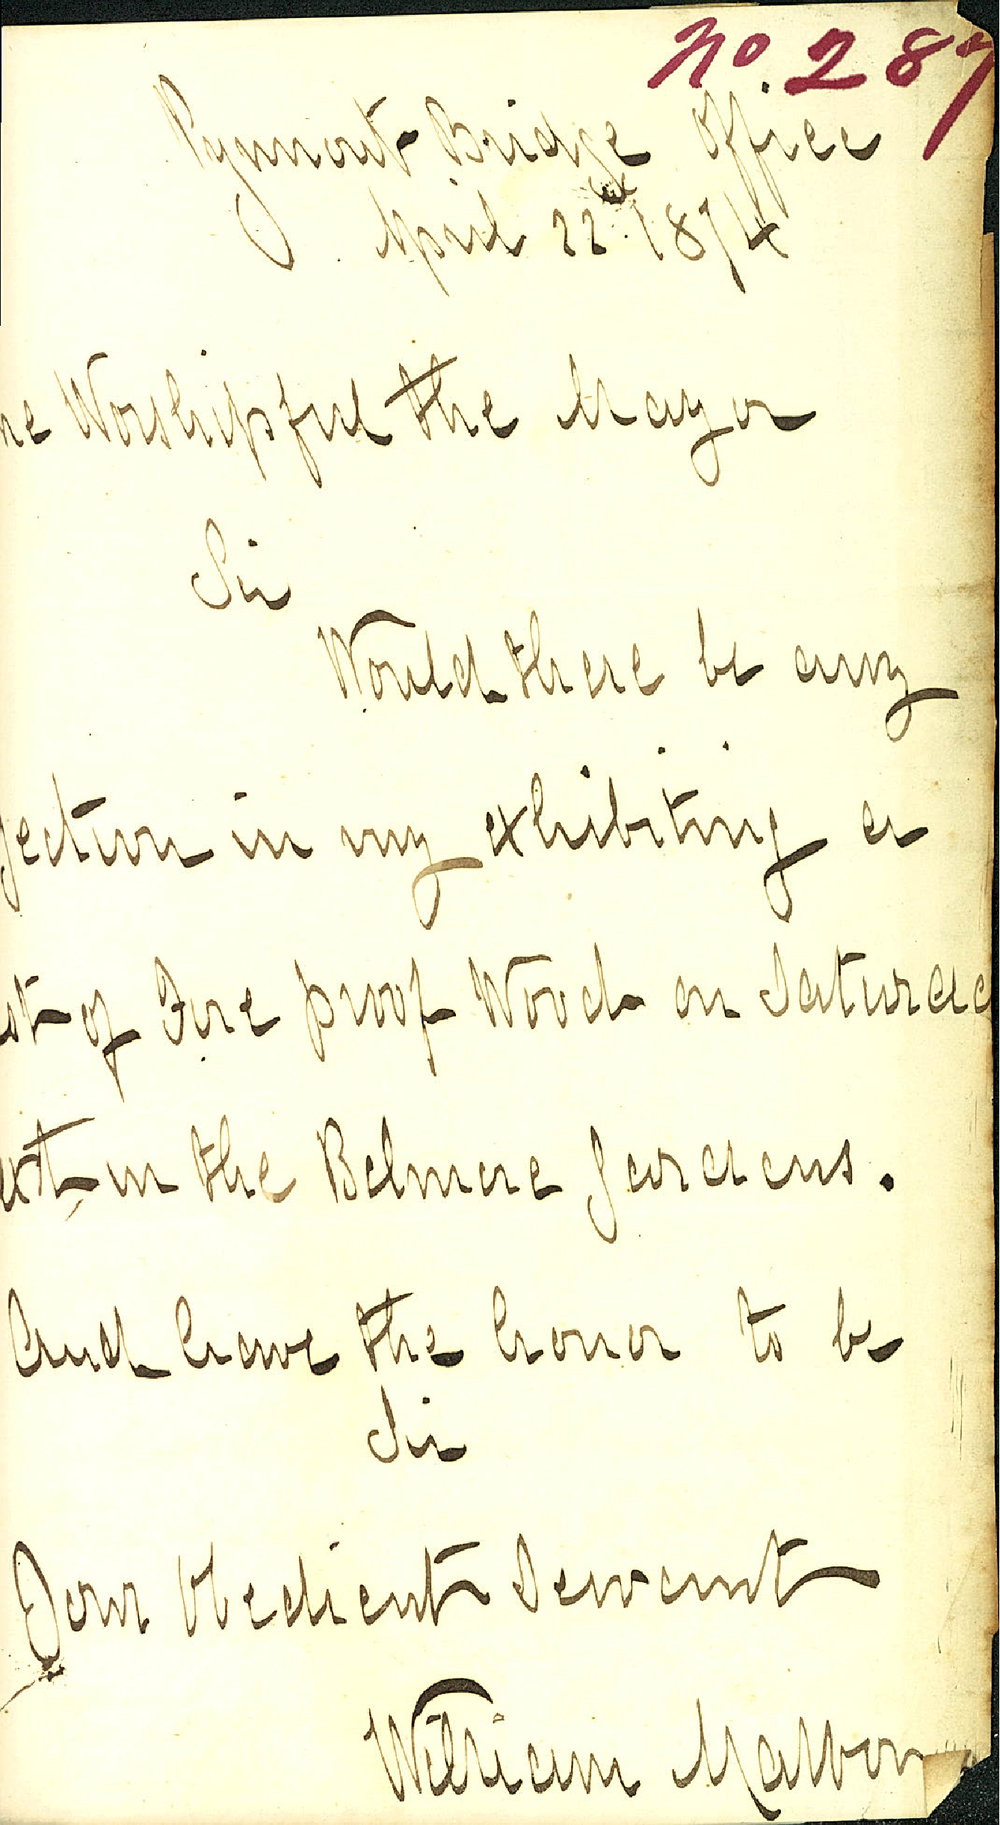 No 287
Pyrmont Bridge Office
April 22nd 1874
he Worshipful the Mayor
Sir
Would there be any
jection in my exhibiting a
st of Fire proof Wood on Saturda
ext in the Belmore Gardens.
And have the honor to be
Sir
Your Obedient Servant
William